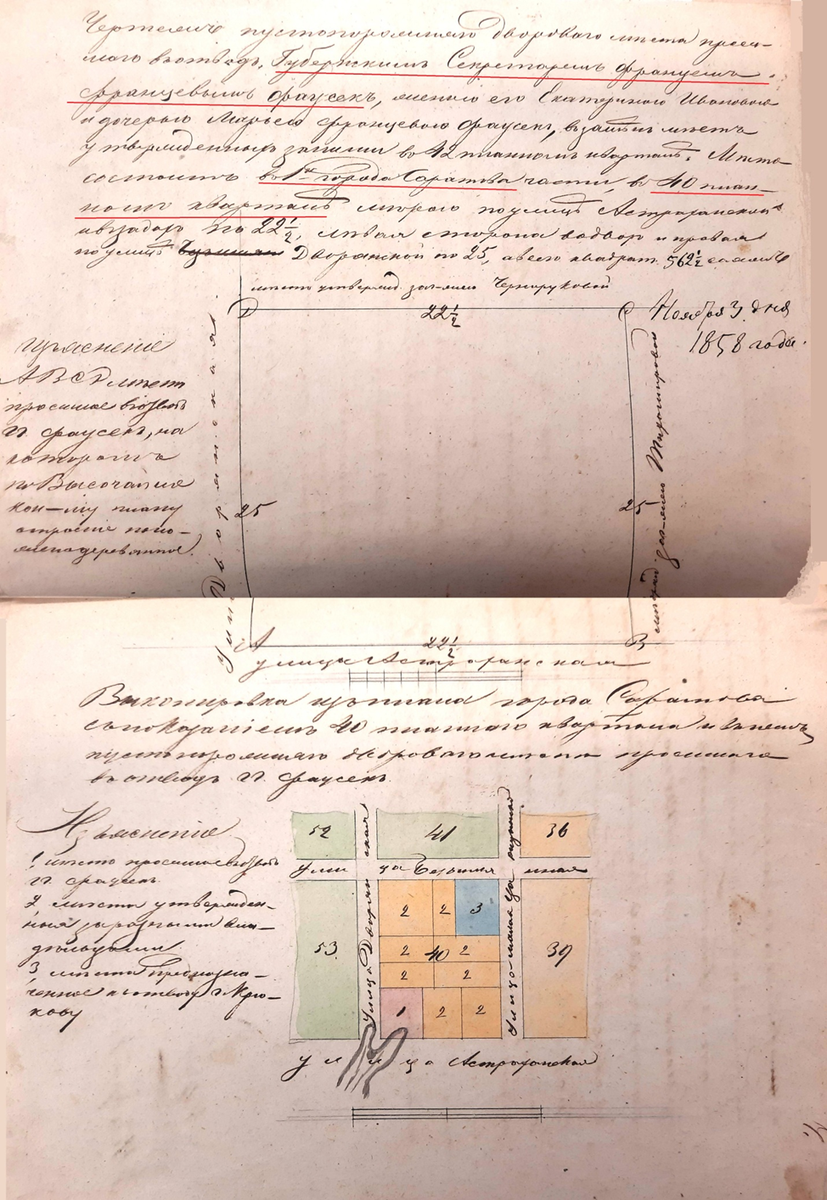 Чертежъ пустопорожняго двороваго мѣста проси-
маго въ отводъ, Губернскимъ Секретаремъ Францемъ
Францевымъ Фаусекъ, женою его Екатериною Ивановою
и дочерью Марьею Францевою Фаусекъ, взамѣнъ мѣстъ
утвержденныхъ за ними въ 42 планномъ кварталѣ. Мѣсто
состоитъ въ 1й города Саратова части въ 40 план-
номъ кварталѣ мѣрою по улицѣ Астраханской
и взадахъ по 22½, лѣвая сторона во дворъ и правая
по улицѣ Дворянской по 25, а всего квадрат. 562½ сажень
мѣсто утвержд. за Чернуруковой
D 22½ C
Ноября 3 дня
1858 года.
Изъясненіе
ABCD мѣсто
просимое въ отводъ
гг. Фаусекъ, на
которомъ
по Высочайше
кон-му плану
строеніе
25
25
Улица Дворянская
A 22½ B
улица Астраханская
Выкопировка изъ плана города Саратова
съ показаніемъ 40 планнаго квартала и въ немъ
пустопорожняго двороваго мѣста просимаго
въ отводъ гг. Фаусекъ.
Изъясненіе
1 мѣсто просимое въ отводъ
гг. Фаусекъ.
2 мѣста утвержден-
ныя за разными вла-
дѣльцами
3 мѣсто предназна-
ченное къ отводу г. Крю-
кову
52
41
36
улица
53
2
2
3
2
40
2
2
2
1
2
2
39
Улица Дворянская
улица Астраханская